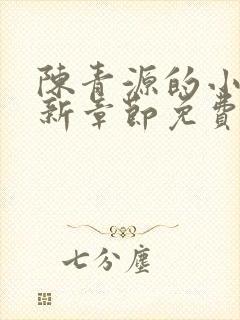 陳青源的小
新章節免費
七分塵